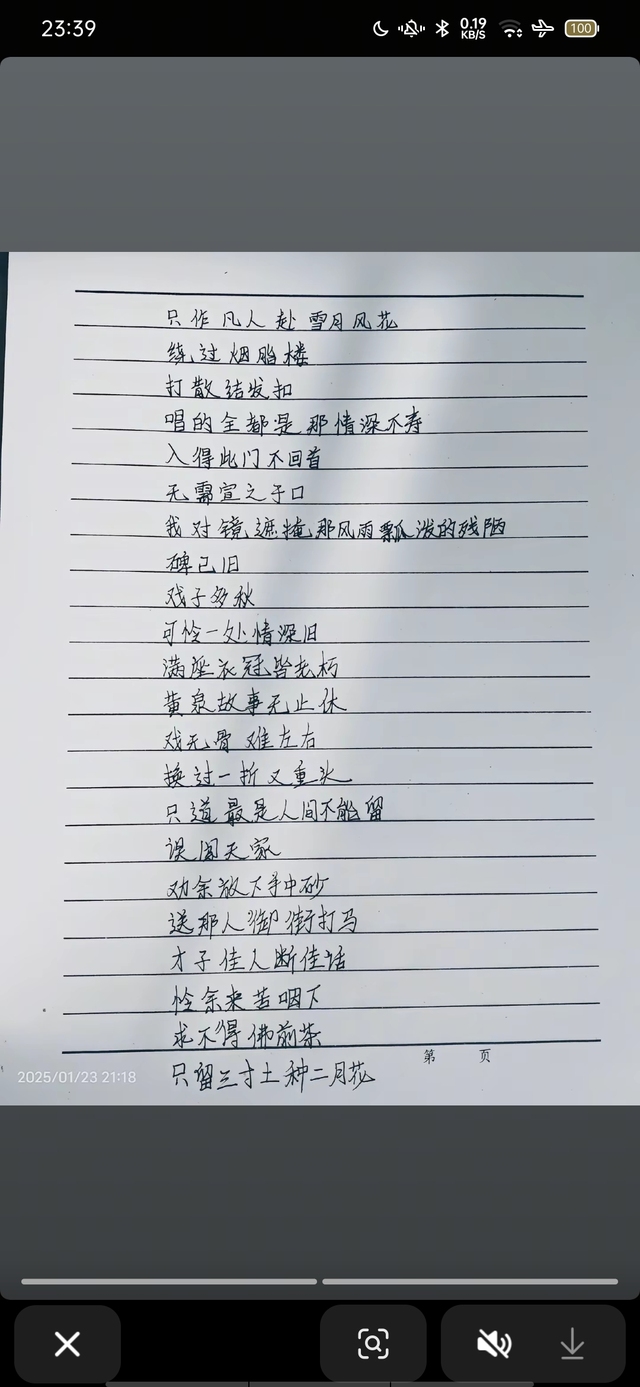 23:39
0.19
KB/S
100
只作凡人赴雪月风花
练过烟胭楼
打散结发扣
唱的全都是那情深不寿
入得此门不回首
无需宣之于口
我对镜遮掩那风雨瓢泼的残陋
碑已旧
戏子多秋
可怜一处情深旧
满座衣冠皆老朽
黄泉故事无止休
戏无骨难左右
换过一折又重头
只道最是人间不能留
误闯天家
劝余放下手中砂
送那人御街打马
才子佳人断佳话
怜余来苦咽下
求不得佛前茶
只留三寸土种二月花
第 页
2025/01/23 21:18